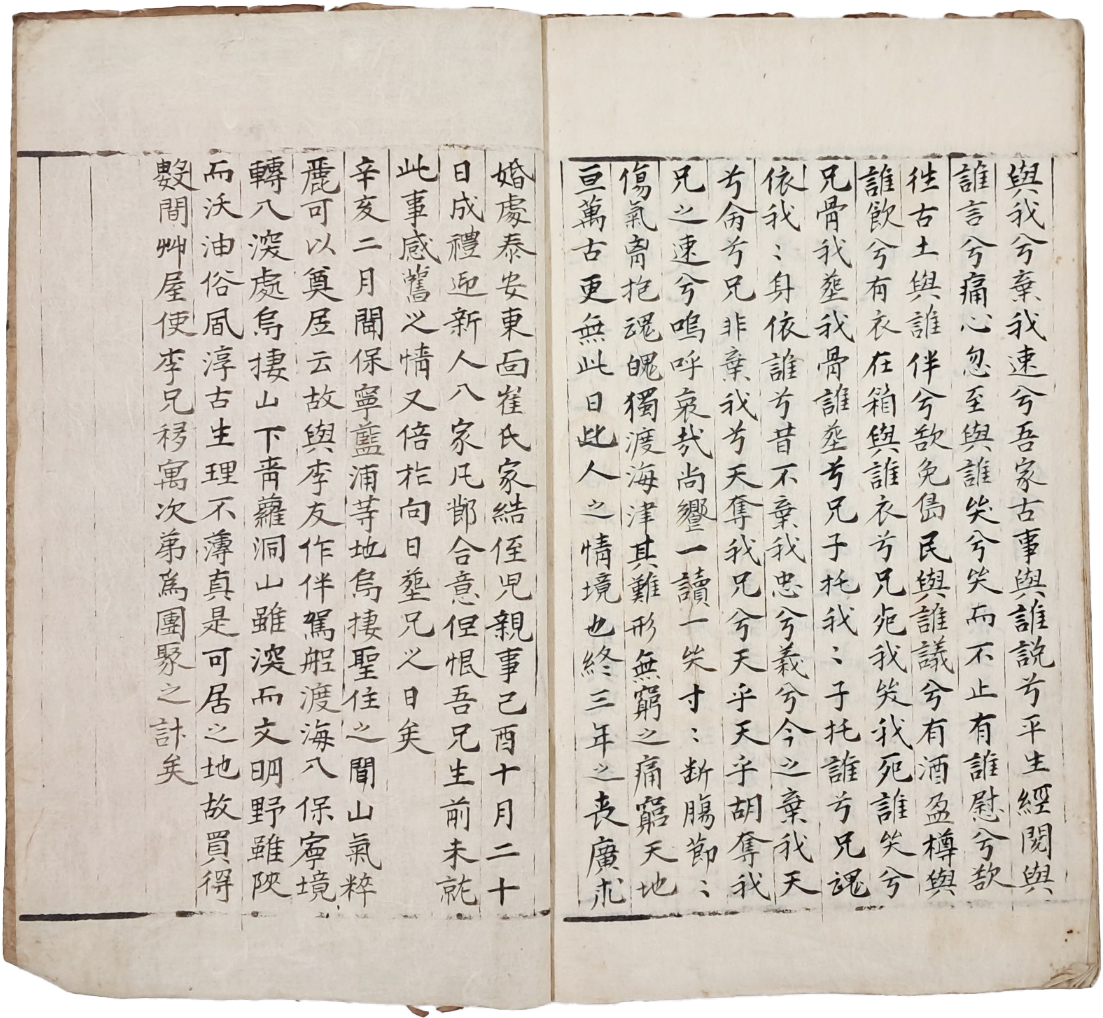 與我兮棄我速兮吾家古事與誰説兮平生經閱與
誰言兮痛心忽至與誰笑兮笑而不止有誰慰兮欲
徃古土與誰伴兮欲免島民與誰議兮有酒盈樽與
誰飲兮有衣在箱與誰衣兮兄死我笑我死誰笑兮
兄骨我塟我骨誰塟兮兄子托我〻子托誰兮兄魂
依我〻身依誰兮昔不棄我忠兮義兮今之棄我天
兮命兮兄非棄我兮天奪我兄兮天乎天乎胡奪我
兄之速兮嗚呼哀哉尚饗一讀一笑寸〻断膓節〻
傷氣奇抱魂魄獨渡海津其難形無窮之痛窮天地
亘萬古更無此日此人之情境也終三年之丧廣求
婚處泰安東面崔氏家結侄児親事己酉十月二十
日成禮迎新人入家凡鄁合意但恨吾兄生前未就
此事感舊之情又倍扵向日塟兄之日矣
辛亥二月聞保寧藍浦等地烏棲聖住之間山氣粹
麗可以奠居云故與李友作伴駕舡渡海入保寧境
轉入深處烏棲山下青蘿洞山雖深而文明野雖陜
而沃油俗風淳古生理不薄真是可居之地故買得
數間艸屋使李兄移寓次第為團聚之計矣